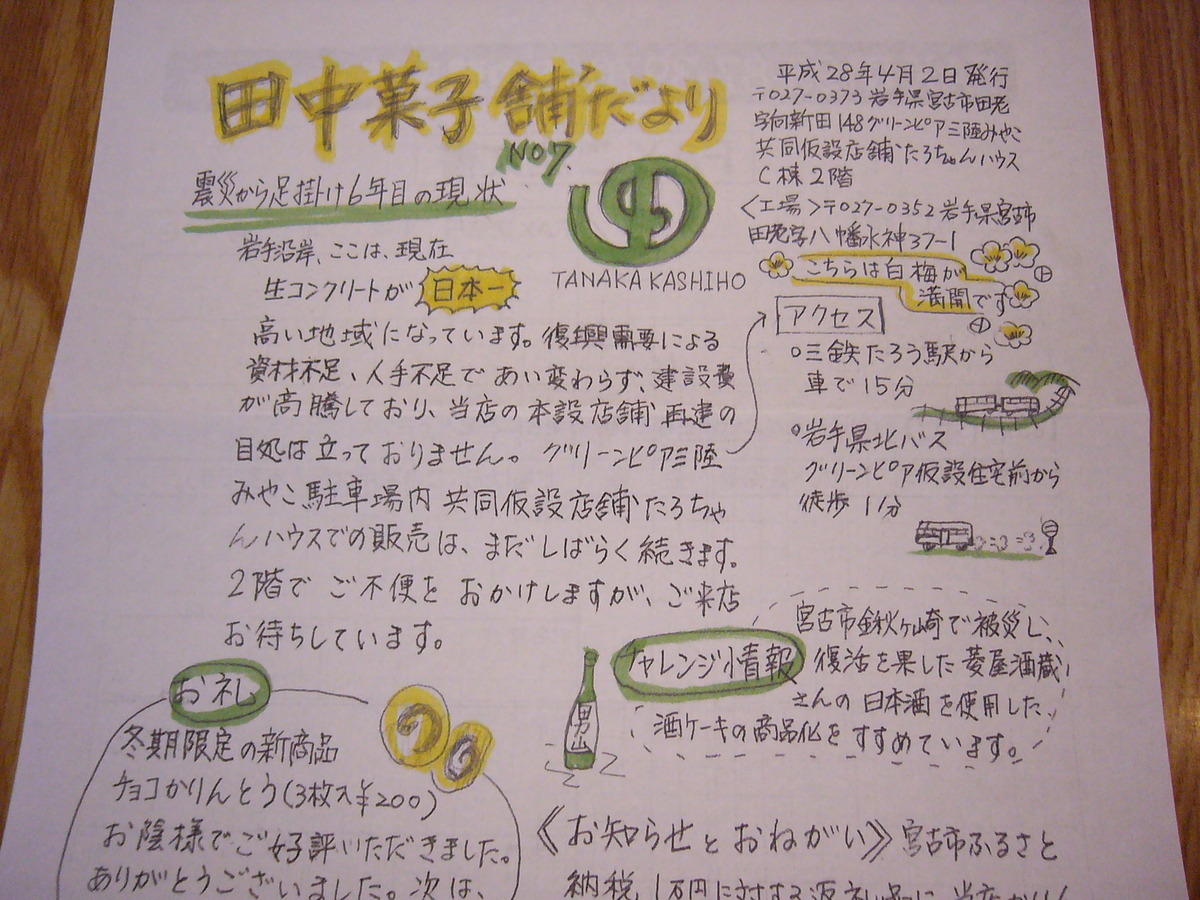 田中菓子舗だより
NO7.
平成28年4月2日発行
〒027-0373 岩手県宮古市田老
字向新田148グリーンピア三陸みやこ
共同仮設店舗たろちゃんハウス
C棟2階
〈工場〉〒027-0352岩手県宮古市
田老字八幡水神37-1
こちらは白梅が
満開です
TANAKA KASHIHO
震災から足掛け6年目の現状
岩手沿岸、ここは、現在
生コンクリートが 日本一
高い地域になっています。復興需要による
資材不足、人手不足で あい変わらず、建設費
が高騰しており、当店の本設店舗 再建の
目処は立っておりません。 グリーンピア三陸
みやこ駐車場内 共同仮設店舗たろちゃ
んハウスでの販売は、まだしばらく続きます。
2階で ご不便を おかけしますが、ご来店
お待ちしています。
アクセス
○三鉄たろう駅から
車で15分
○岩手県北バス
グリーンピア仮設住宅前から
徒歩 1分
チャレンジ情報
宮古市鍬ヶ崎で被災し、
復活を果した 菱屋酒蔵
さんの 日本酒を使用した、
酒ケーキの商品化を すすめています。
男山
お礼
冬期限定の新商品
チョコかりんとう(3枚入¥200)
お陰様でご好評いただきました。
ありがとうございました。次は、
《お知らせとおねがい》宮古市ふるさと
納税 1万円に対する返礼品に 当店かりん